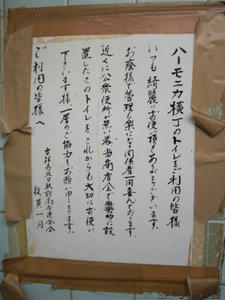 ハーモニカ横丁のトイレをご利用の皆様
いつも綺麗にお使い頂きありがとうございます。
お蔭様で管理も楽になり関係者一同喜んでおります。
近くに公衆便所が無い為当商店会で自発的に設
置したこのトイレをこれからも大切にお使い
下さいます様、一層のご協力をお願い申し上げます。
ご利用の皆様へ
吉祥寺北口駅前商店連合会
役員一同